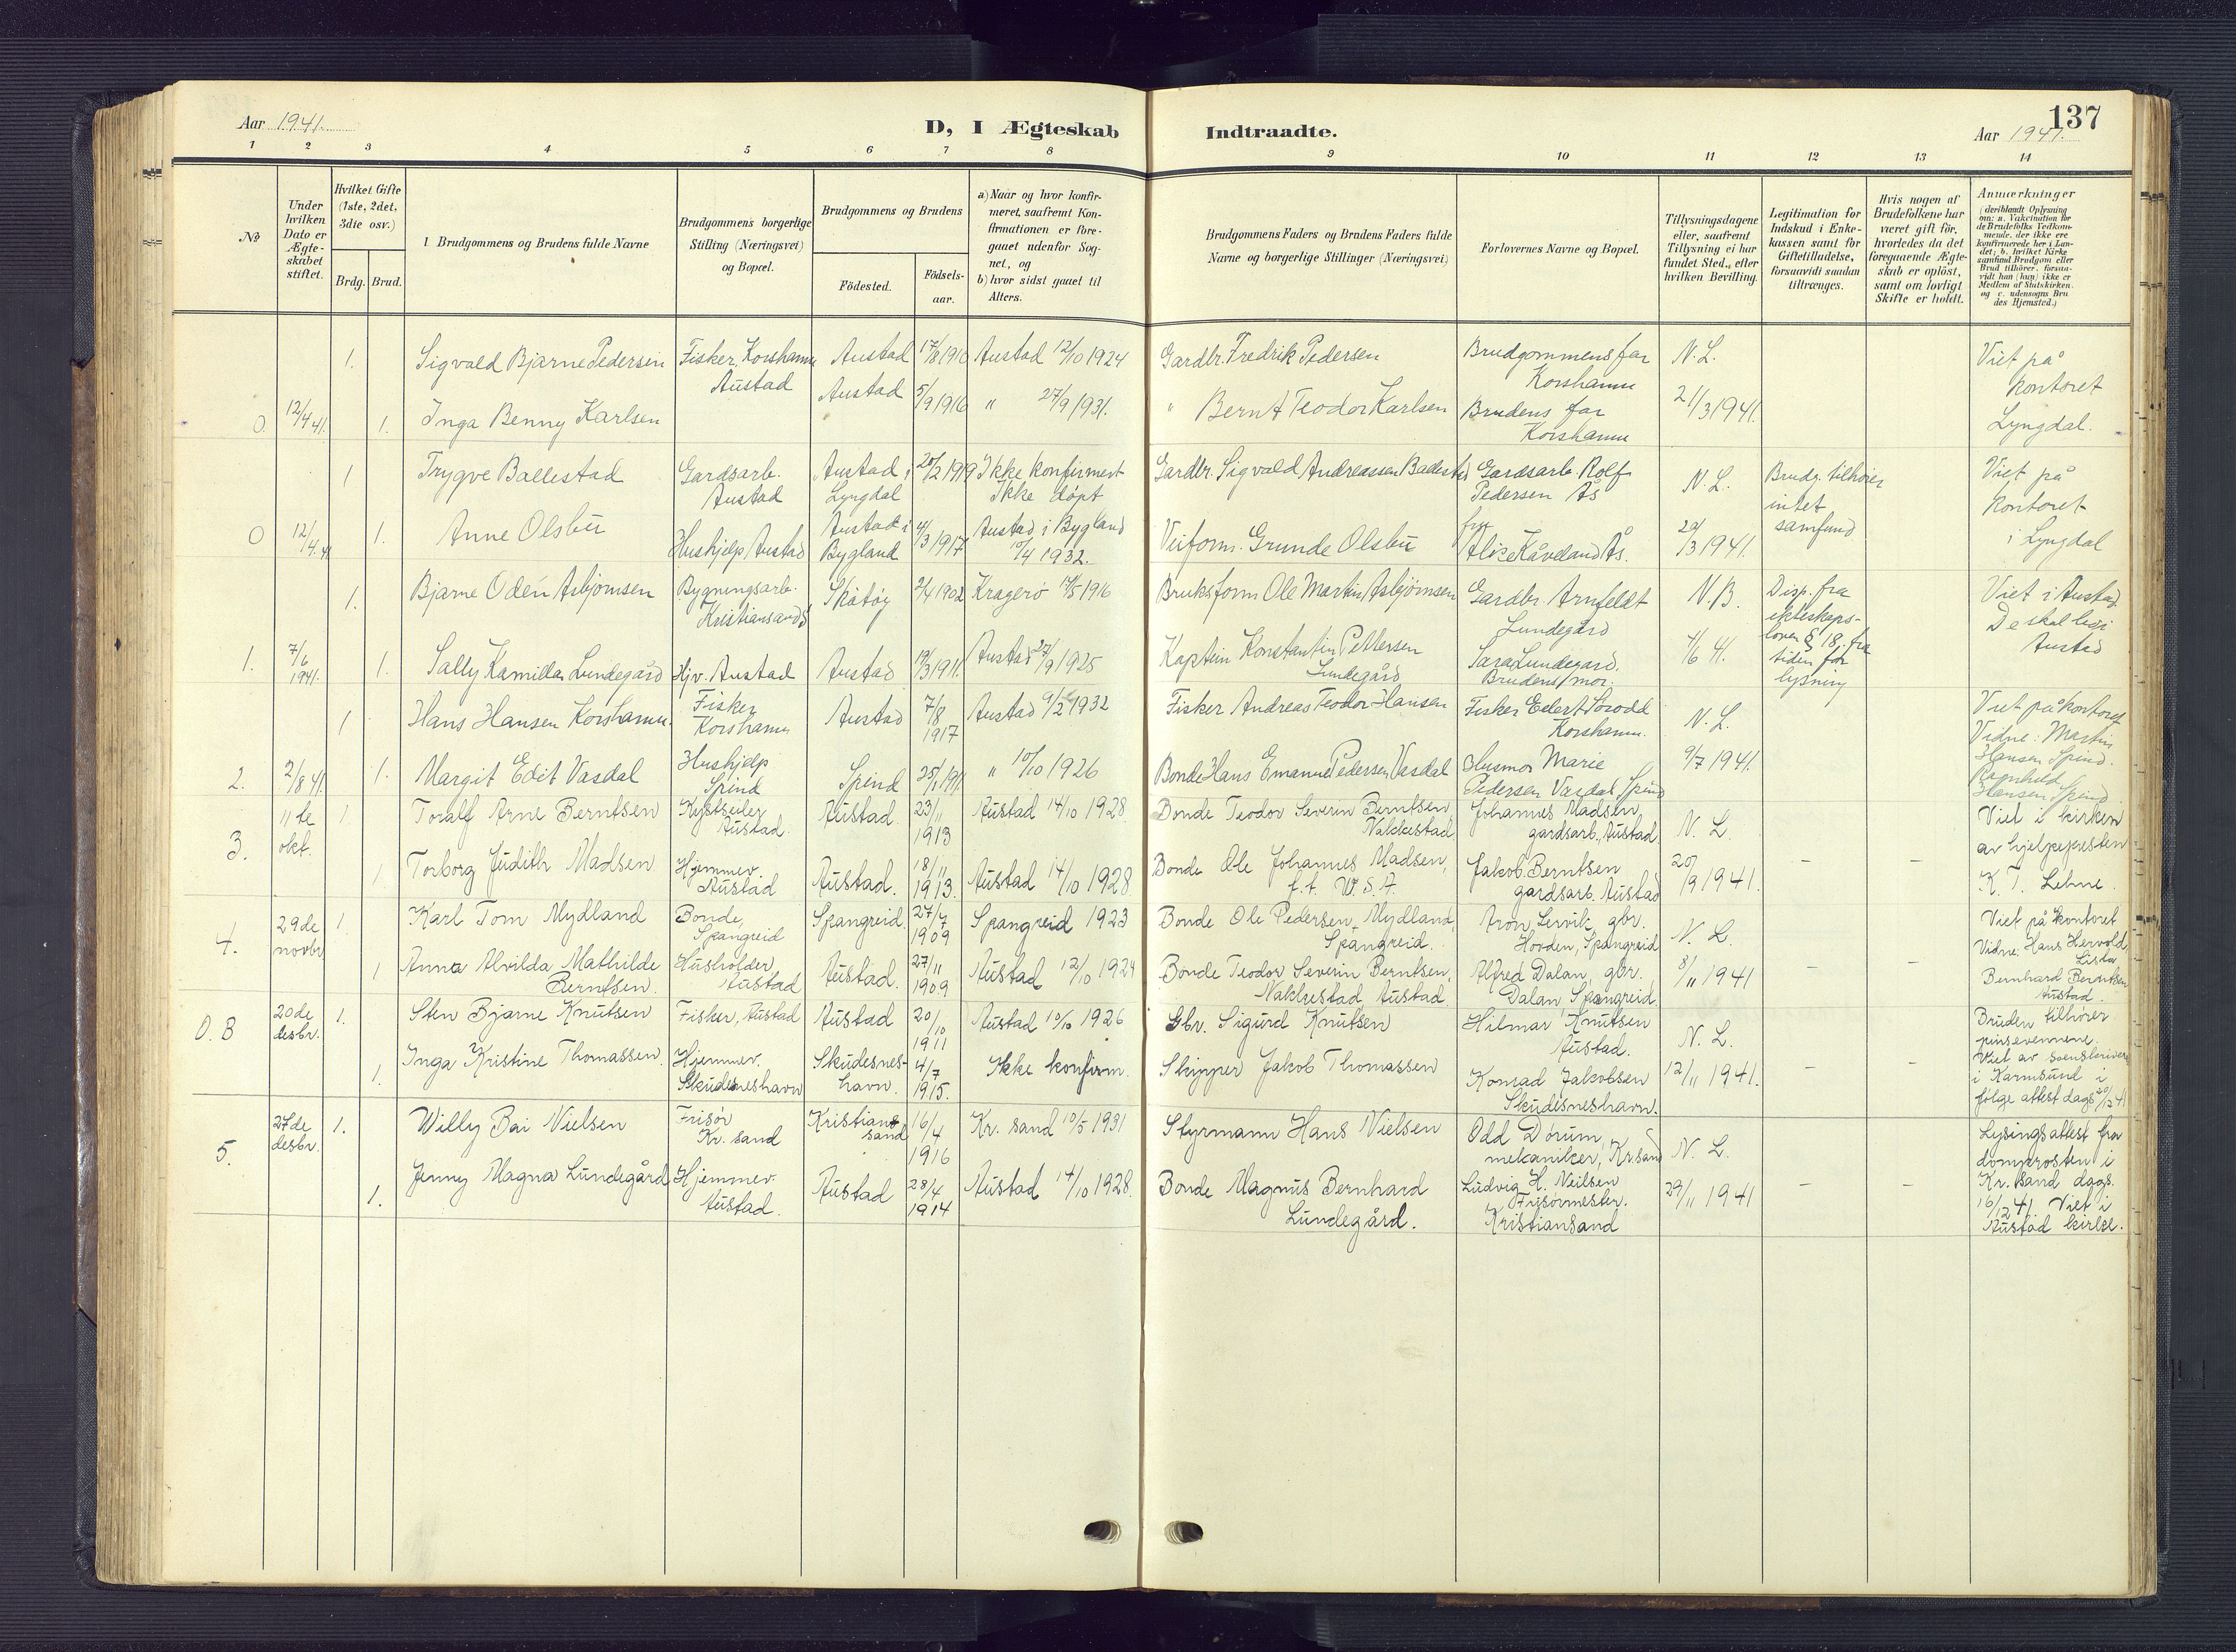 Aar 1941.
D, I Ægteskab
Indtraadte.
137
Aar 1941.
1 2 3 4 5 6 7 8 9 10 11 12 13 14
No
Under hvilken Dato er Ægte-skabet stiftet.
Hvilket Gifte (1ste, 2det, 3die osv.)
Brdg. Brud.
1 Brudgommens og Brudens fulde Navne
Brudgommens borgerlige Stilling (Næringsvei) og Bopæl.
Brudgommens og Brudens
Födested.
Födsels-aar.
a) Naar og hvor konfir-meret, saafremt Kon-firmationen er fore-gaaet udenfor Sog-net, og
b) hvor sidst gaaet til Alters.
Brudgommens Faders og Brudens Faders fulde Navne og borgerlige Stillinger (Næringsvei)
Forlovernes Navne og Bopæl.
Tillysningsdagene eller, saafremt Tillysning ei har fundet Sted, efter hvilken Bevilling.
Legitimation for Indskud i Enke-kassen samt for Giftetilladelse, forsaavidt saadan tiltrænges.
Hvis nogen af Brudefolkene har været gift för, hvorledes da det foregaaende Ægte-skab er oplöst, samt om lovligt Skifte er holdt.
Anmærkninger
(deriblandt Oplysning om: a. Vakcination for de Brudefolks Vedkom-mende, der ikke ere konfirmerede her i Lan-det; b. hvilket Kirke samfund Brudgom eller Brud tilhörer, forsaa-vidt han (hun) ikke er Medlem af Statskirken. og c. udensogns Bru des Hjemsted.)
1. Sigvald Bjarne Pedersen Fisker, Korshamn Austad Austad 17/8 1910 Austad 12/10 1924 Gardbr. Fredrik Pedersen Brudgommens far Korshamn N. L. Viet på kontoret
0. 12/4 41. 1. Inga Benny Karlsen Austad 5/9 1916 " 27/9 1931. " Bernt Teodor Karlsen Brudens far Korshamn 21/3 1941. Lyngdal.
1 Trygve Ballestad Gardsarb. Austad Austad i Lyngdal 20/2 1919 Ikke konfirmert Ikke døpt Gardbr. Sigvald Andreassen Ballestad Gardsarb Rolf Pedersen Ås N. L. Brudg. tilhører intet samfund Viet på kontoret
0 12/4 41 1. Anne Olsbu Hushjelp Austad Austad i Bygland 4/3 1917 Austad i Bygland 10/4 1932. Veiform. Grunde Olsbu fru Alise Kåveland Ås. 20/3 1941. i Lyngdal
1. Bjarne Odén Asbjørnsen Bygningsarb. Kristiansand S Skåtøy 2/4 1902 Kragerø 14/5 1916 Bruksform Ole Martin Asbjørnsen Gardbr. Arnfeldt Lundegård N. B. Disp. fra ekteskaps-loven § 18, fra tiden for lysning Viet i Austad. De skal bo i Austad
1. 7/6 1941. 1. Sally Kamilla Lundegård Hjv. Austad Austad 19/3 1911. Austad 27/9 1925 Kaptein Konstantin Pettersen Lundegård Sara Lundegård. Brudens mor. 4/6 41.
1 Hans Hansen Korshamn. Fisker Korshamn Austad 7/8 1917 Austad 9/2 1932 Fisker Andreas Teodor Hansen Fisker Edert Korshamn. N. L. Viet på kontoret Vidne: Martin Hansen Spind.
2. 2/8 41. 1. Margit Edit Vasdal Hushjelp Spind Spind 25/1 1911. " 10/10 1926 Bonde Hans Emanuel Pedersen Vasdal Husmor Marie Pedersen Vasdal, Spind 9/7 1941. Ragnhild Hansen Spind
3. 11te okt. 1 Toralf Arne Berntsen Kystseiler Austad. Austad. 23/11 1913 Austad 14/10 1928. Bonde Teodor Severin Berntsen, Nakkestad Johannes Madsen, gardsarb., Austad N. L. Viet i kirken av hjelpepresten
1 Torborg Judith Madsen Hjemmev. Austad Austad. 18/11 1913. Austad 14/10 1928 Bonde Ole Johannes Madsen, f.t. U.S.A. Jakob Berntsen gardsarb. Austad 20/9 1941. – – K. T. Lehne.
4. 29de novbr 1. Karl Tom Mydland Bonde, Spangreid Spangreid. 27/7 1909 Spangreid 1923 Bonde Ole Pedersen Mydland, Spangreid. Aron Lervik, gbr. Hovden, Spangreid N. L. Viet på kontoret Vidne: Hans Hervold Lista
1 Anna Alvilda Mathilde Berntsen. Husholder Austad Austad. 27/11 1909 Austad 12/10 1924 Bonde Teodor Severin Berntsen, Nakkestad, Austad. Alfred Dalan, gbr. Dalan, Spangreid. 8/11 1941 – – Bernhard Berntsen Austad.
0. 8 20de desbr. 1. Sten Bjarne Knutsen Fisker, Austad Austad 20/10 1911 Austad 10/10 1926 Gbr. Sigurd Knutsen Hilmar Knutsen Austad. N. L. Bruden tilhører pinsevennene.
1. Inga Kristine Thomassen Hjemmev. Skudeneshavn Skudesnes-havn. 4/7 1915. Ikke konfirm. Skipper Jakob Thomassen Konrad Jakobsen Skudesneshavn. 12/11 1941. – – Viet av sorenskriveren i Karmsund i følge attest dags. 20/12 41
5. 27de desbr. 1. Willy Bai Nielsen Frisør Kr. sand Kristiansand 16/4 1916 Kr. sand 10/5 1931 Styrmann Hans Nielsen Odd Dørum, mekaniker, Kr.sand N. L. Lysingsattest fra domprosten i
1. Jenny Magna Lundegård Hjemmev. Austad. Austad 28/4 1914 Austad 14/10 1928. Bonde Magnus Bernhard Lundegård. Ludvig H. Neilsen Frisørmester. Kristiansand 29/11 1941 – – Kr. sand dags. 16/12 41. Viet i Austad kirke.